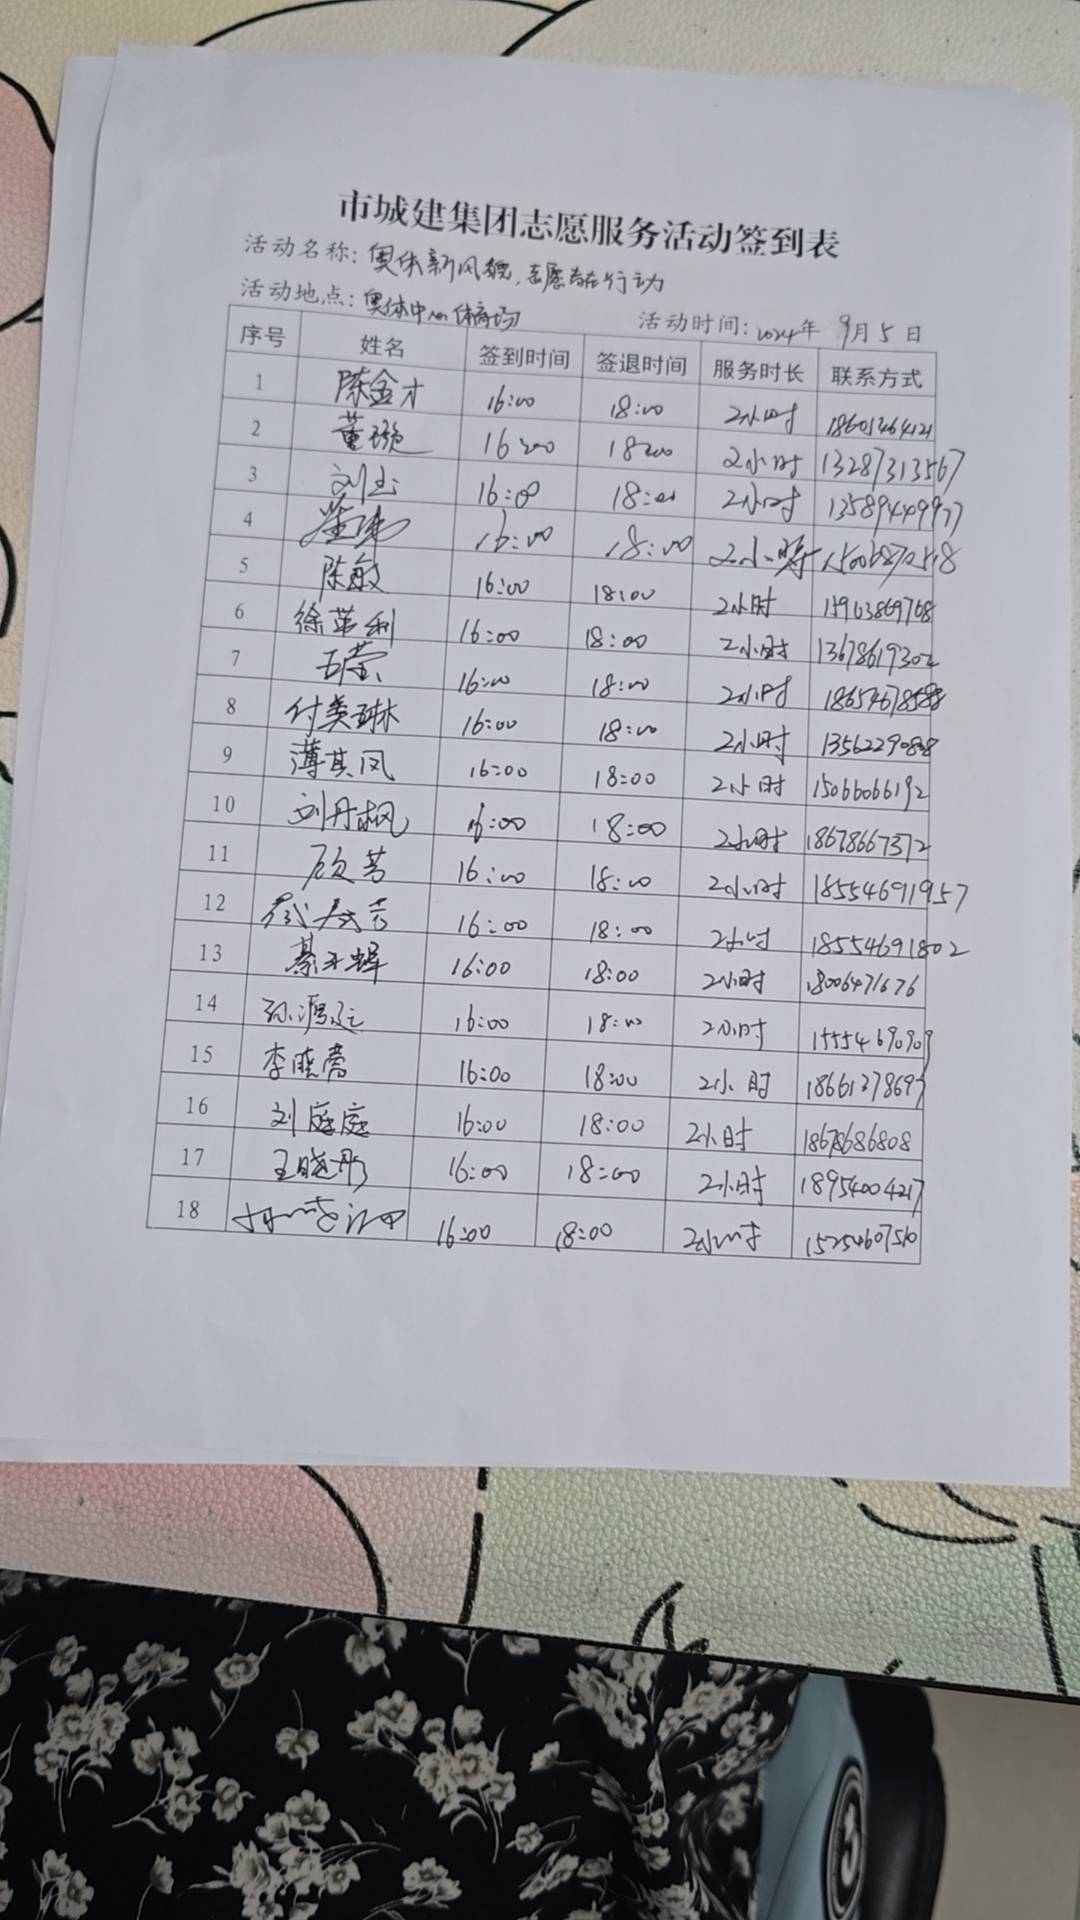 市城建集团志愿服务活动签到表
活动名称：奥体新风貌，志愿者在行动
活动地点：奥体中心体育场 活动时间：2024年9月5日
序号 姓名 签到时间 签退时间 服务时长 联系方式
1 陈金才 16:00 18:00 2小时
2 董璇 16:00 18:00 2小时 13287313567
3 刘玉 16:00 18:00 2小时 13589449977
4 16:00 18:00 2小时
5 陈敏 16:00 18:00 2小时 15963869768
6 徐苹利 16:00 18:00 2小时 13678619302
7 王莹 16:00 18:00 2小时
8 付英琳 16:00 18:00 2小时
9 薄其凤 16:00 18:00 2小时 15066066192
10 刘丹枫 16:00 18:00 2小时 18678667372
11 顾芳 16:00 18:00 2小时 18554691957
12 16:00 18:00 2小时 18554691802
13 16:00 18:00 2小时 18006471676
14 16:00 18:00 2小时 15554690909
15 李晓蕾 16:00 18:00 2小时 18661278697
16 刘庭庭 16:00 18:00 2小时 18678686808
17 王晓彤 16:00 18:00 2小时 18954004217
18 16:00 18:00 2小时 15254607510